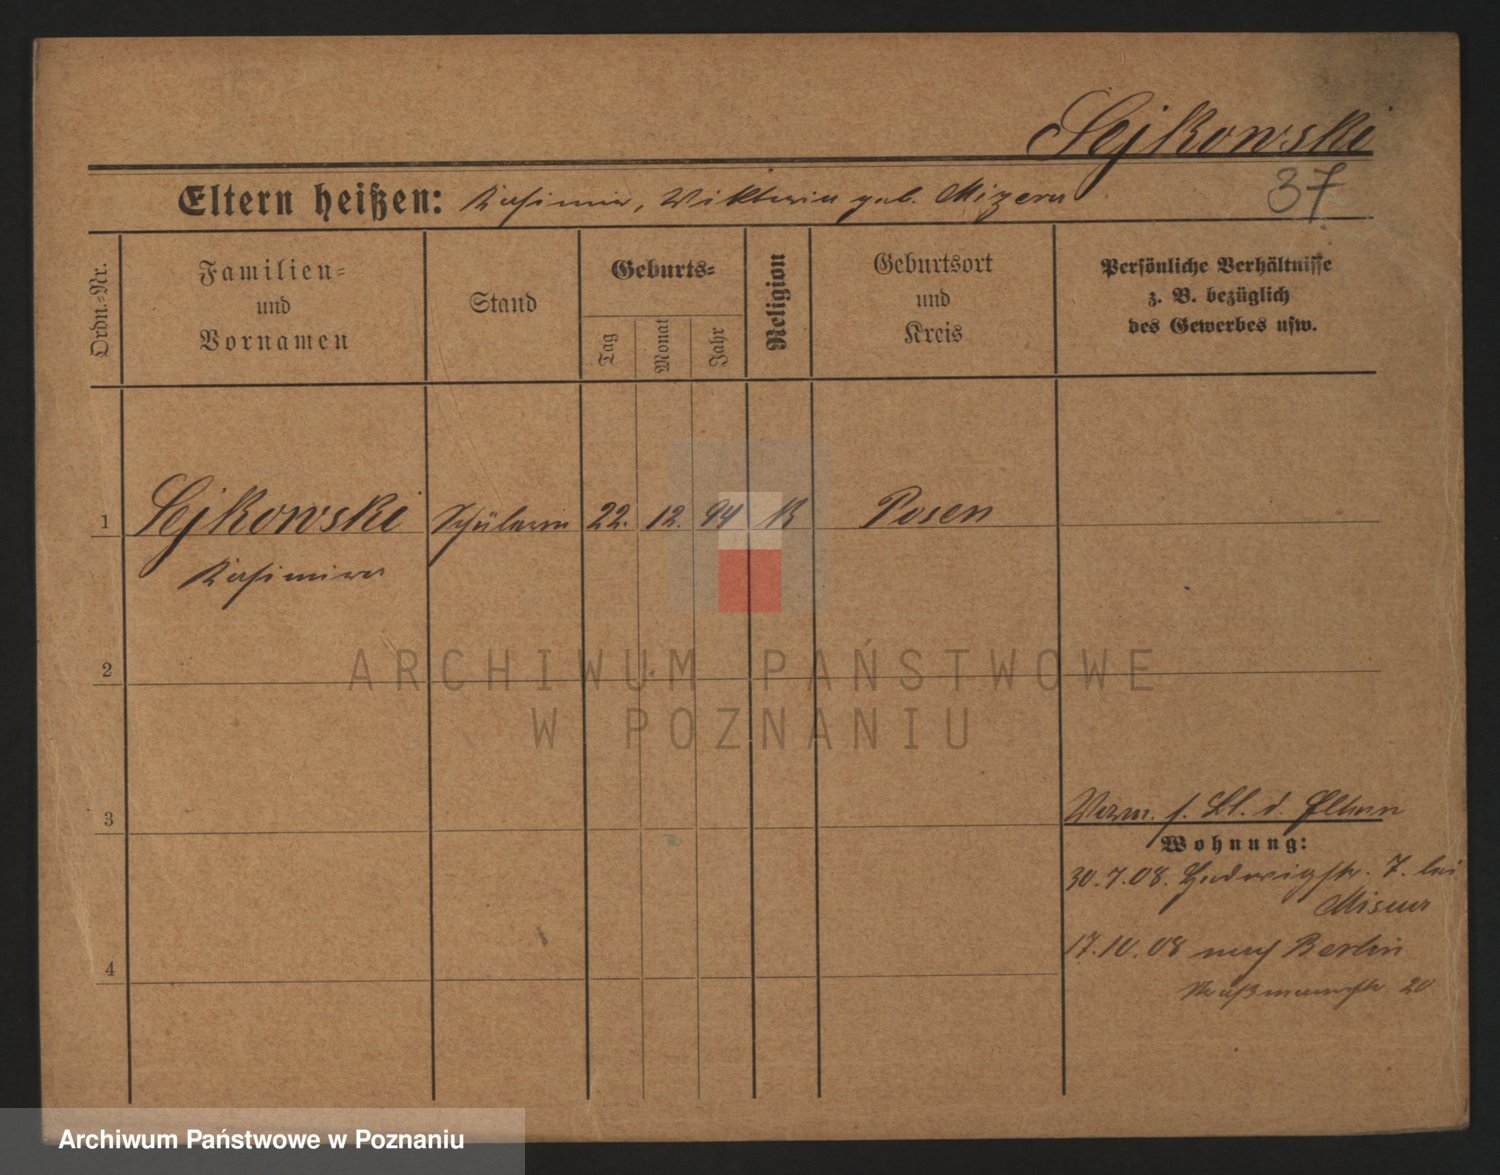 Sejkowski
37
Eltern heißen: Kasimir, Wiktoria geb. Mizera
Ordn.-Nr.
Familien-
und
Vornamen
Stand
Geburts-
Tag
Monat
Jahr
Religion
Geburtsort
und
Kreis
Persönliche Verhältnisse
z. B. bezüglich
des Gewerbes usw.
1 Sejkowski Schülerin 22. 12. 94 K Posen
Kasimira
2
ARCHIWUM PAŃSTWOWE
W POZNANIU
3
Verm. s. Bl. d. Eltern
Wohnung:
30.7.08. Hedwigstr. 7. bei
Misera
4
17.10.08 nach Berlin
20
Archiwum Państwowe w Poznaniu